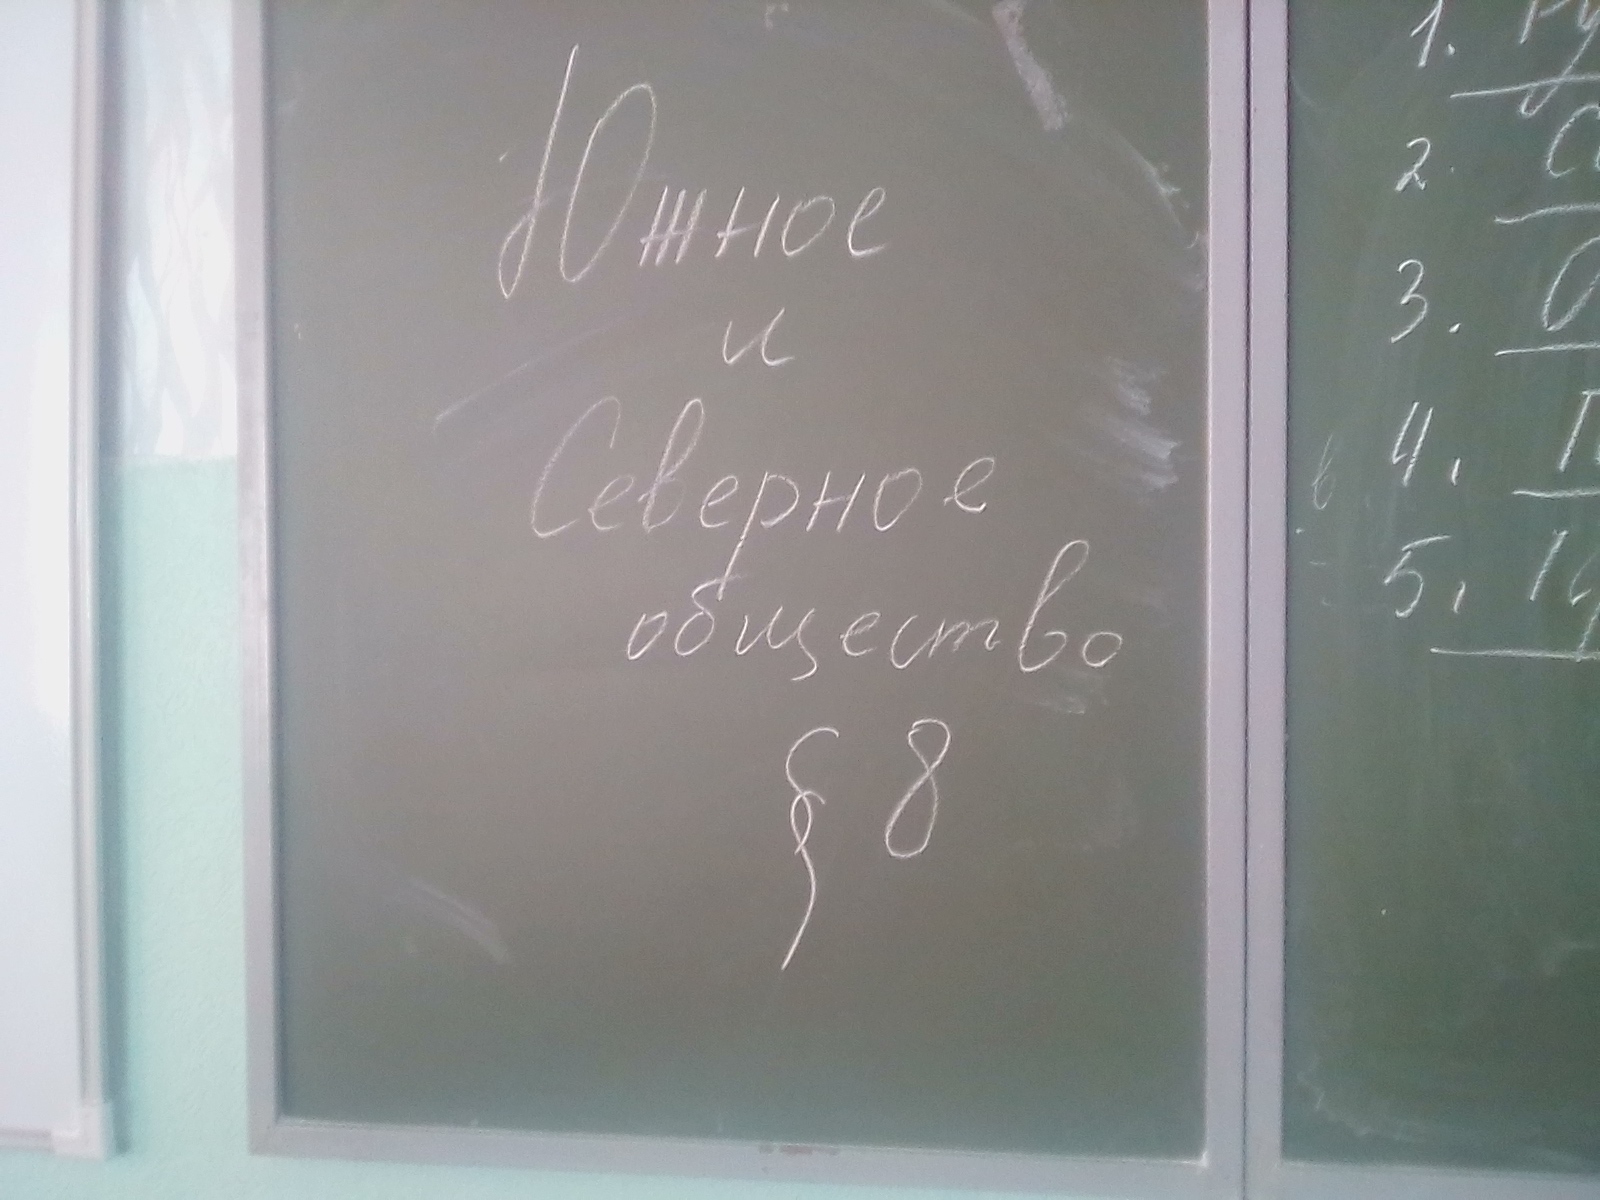 Южное
и
Северное
общество
§ 8
1.
2.
3.
4.
5.